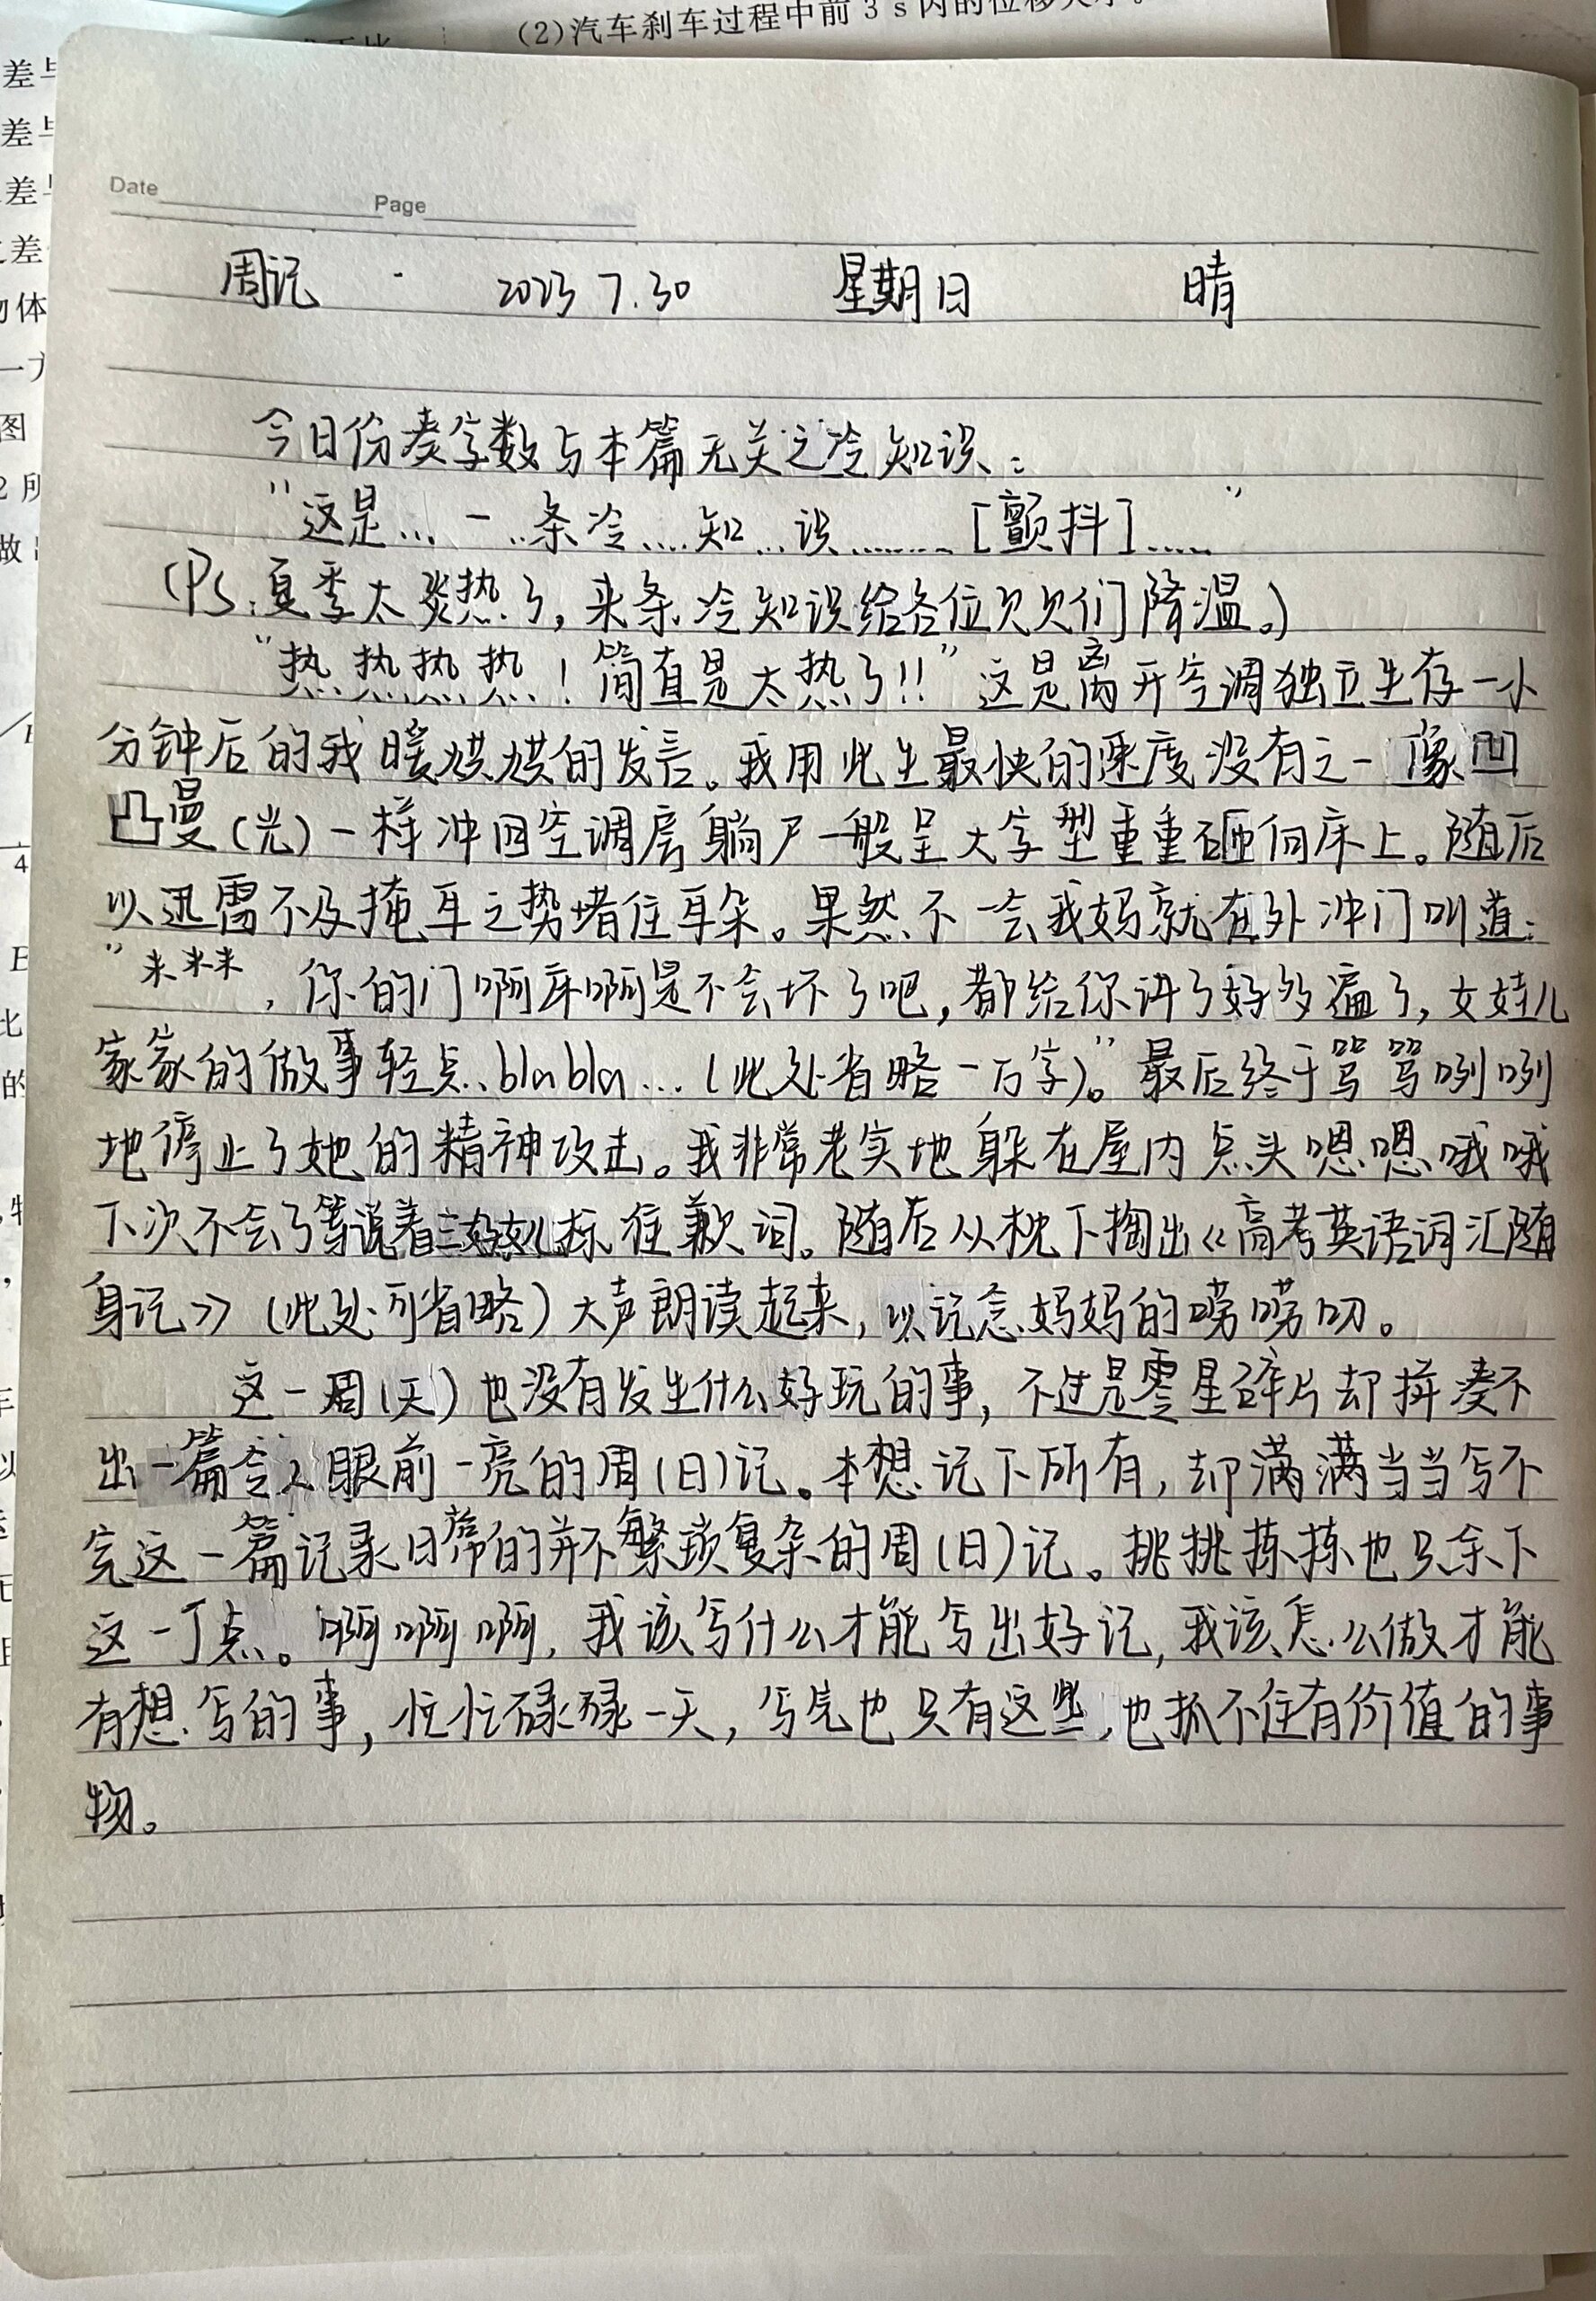 (2)汽车刹车过程中前 3 s 内的位移大小。
Date Page
周记 · 2023 7.30 星期日 晴
今日份凑字数与本篇无关之冷知识：
“这是... 一..条冷....知...识......... [颤抖]......”
(Ps：夏季太炎热了，来条冷知识给各位欠欠们降温。)
“热热热热！简直是太热了!!”这是离开空调独立生存一小
分钟后的我暖烘烘的发言。我用此生最快的速度没有之一像凹
凸曼(光)一样冲回空调房躺尸一般呈大字型重重砸向床上。随后
以迅雷不及掩耳之势堵住耳朵。果然不一会我妈就在外冲门叫道：
“米米米，你的门啊床啊是不会坏了吧，都给你讲了好多遍了，女娃儿
家家的做事轻点、blabla...(此处省略一万字)。”最后终于骂骂咧咧
地停止了她的精神攻击。我非常老实地躲在屋内点头嗯嗯哦哦
下次不会了等说着三好女儿标住歉词。随后从枕下掏出《高考英语词汇随
身记》(此处可省略)大声朗读起来，以记念妈妈的唠唠叨。
这一周(天)也没有发生什么好玩的事，不过是零星碎片却拼凑不
出一篇令人眼前一亮的周(日)记。本想记下所有，却满满当当写不
完这一篇记录日常的并不繁琐复杂的周(日)记。挑挑拣拣也只余下
这一丁点。啊啊啊，我该写什么才能写出好记，我该怎么做才能
有想写的事，忙忙碌碌一天，写完也只有这些，也抓不住有价值的事
物。